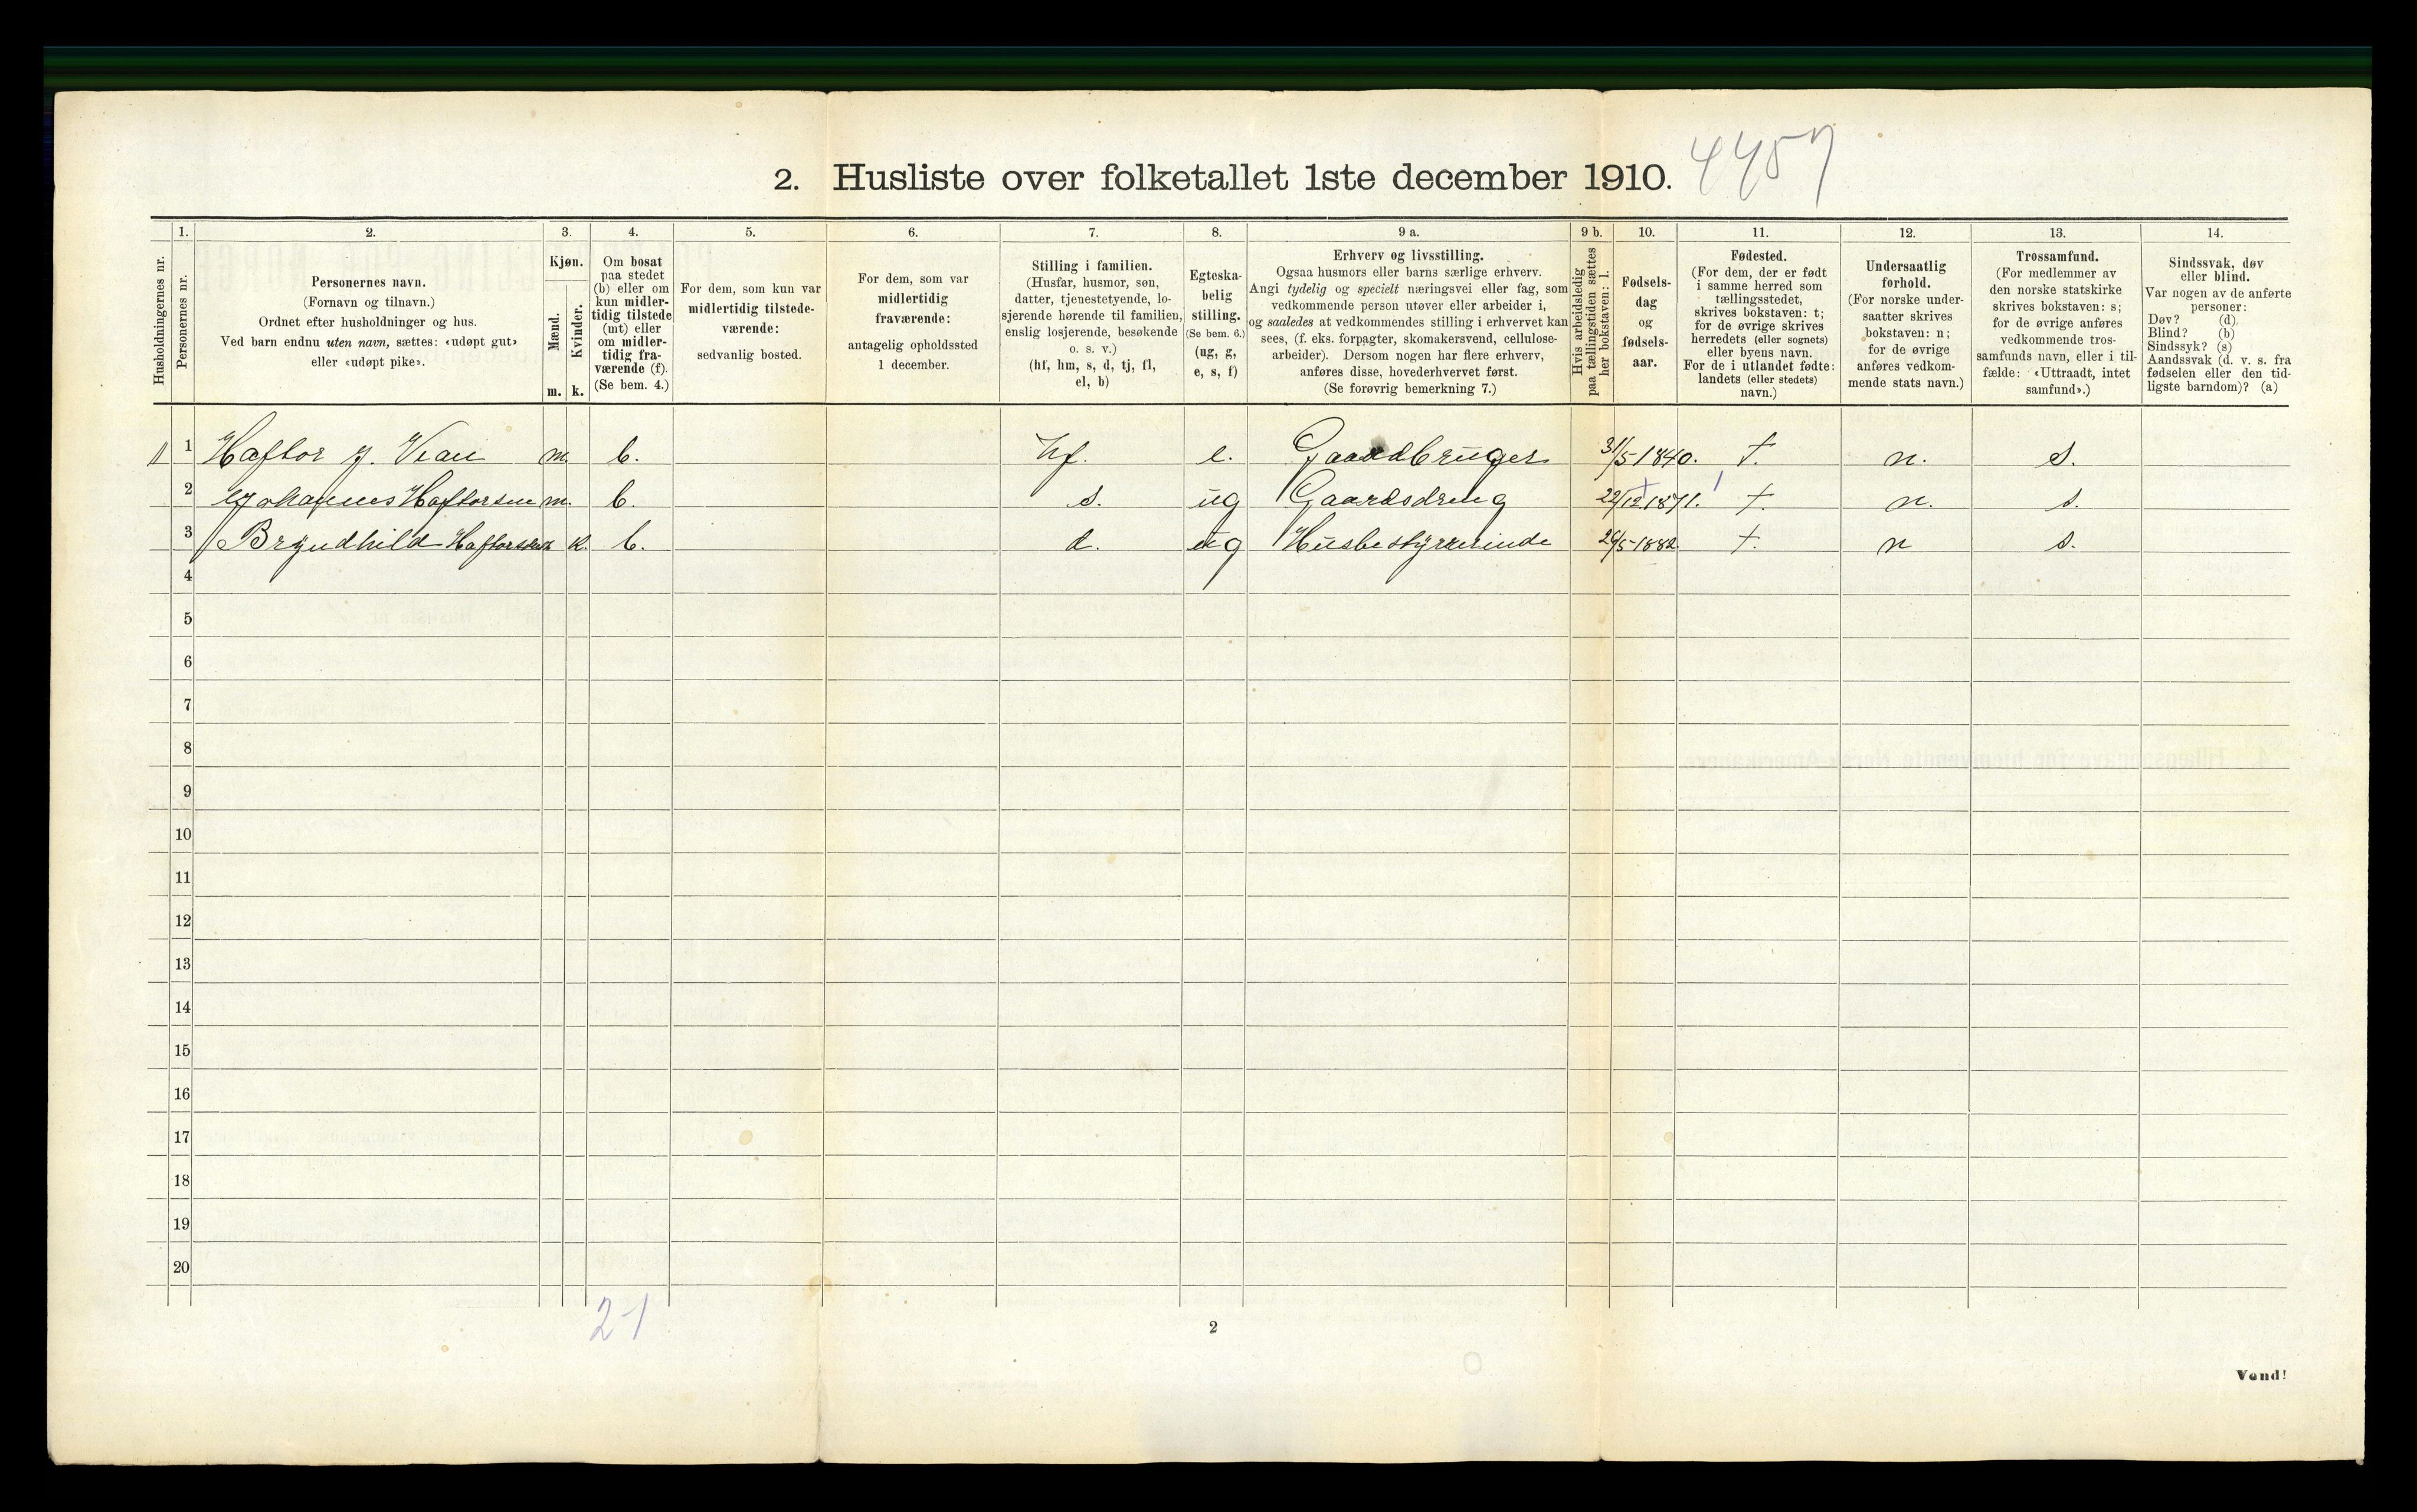 2. Husliste over folketallet 1ste december 1910. 4457
Husholdningernes nr.
1. Personernes nr.
2. Personernes navn.
(Fornavn og tilnavn.)
Ordnet efter husholdninger og hus.
Ved barn endnu uten navn, sættes: «udøpt gut»
eller «udøpt pike».
3. Kjøn.
Mænd. m.
Kvinder. k.
4. Om bosat
paa stedet
(b) eller om
kun midler-
tidig tilstede
(mt) eller
om midler-
tidig fra-
værende (f).
(Se bem. 4.)
5. For dem, som kun var
midlertidig tilstede-
værende:
sedvanlig bosted.
6. For dem, som var
midlertidig
fraværende:
antagelig opholdssted
1 december.
7. Stilling i familien.
(Husfar, husmor, søn,
datter, tjenestetyende, lo-
sjerende hørende til familien,
enslig losjerende, besøkende
o. s. v.)
(hf, hm, s, d, tj, fl,
el, b)
8. Egteska-
belig
stilling.
(Se bem. 6.)
(ug, g,
e, s, f)
9 a. Erhverv og livsstilling.
Ogsaa husmors eller barns særlige erhverv.
Angi tydelig og specielt næringsvei eller fag, som
vedkommende person utøver eller arbeider i,
og saaledes at vedkommendes stilling i erhvervet kan
sees, (f. eks. forpagter, skomakersvend, cellulose-
arbeider). Dersom nogen har flere erhverv,
anføres disse, hovederhvervet først.
(Se forøvrig bemerkning 7.)
9 b. Hvis arbeidsledig
paa tællingstiden sættes
her bokstaven: l.
10. Fødsels-
dag
og
fødsels-
aar.
11. Fødested.
(For dem, der er født
i samme herred som
tællingsstedet,
skrives bokstaven: t;
for de øvrige skrives
herredets (eller sognets)
eller byens navn.
For de i utlandet fødte:
landets (eller stedets)
navn.)
12. Undersaatlig
forhold.
(For norske under-
saatter skrives
bokstaven: n;
for de øvrige
anføres vedkom-
mende stats navn.)
13. Trossamfund.
(For medlemmer av
den norske statskirke
skrives bokstaven: s;
for de øvrige anføres
vedkommende tros-
samfunds navn, eller i til-
fælde: «Uttraadt, intet
samfund».)
14. Sindssvak, døv
eller blind.
Var nogen av de anførte
personer:
Døv? (d)
Blind? (b)
Sindssyk? (s)
Aandssvak (d. v. s. fra
fødselen eller den tid-
ligste barndom)? (a)
1 Haftor J. m. b. hf. e. Gaardbruger 31/5 1840. t. n. s.
2 Johannes Haftorsen m. b. s. ug Gaardsdreng 22/12 1871. t. n. s.
3 Bryndhild k. b. d. ug Husbestyrerinde 1882 t. n s.
4
5
6
7
8
9
10
11
12
13
14
15
16
17
18
19
20
2-1
2
Vend!